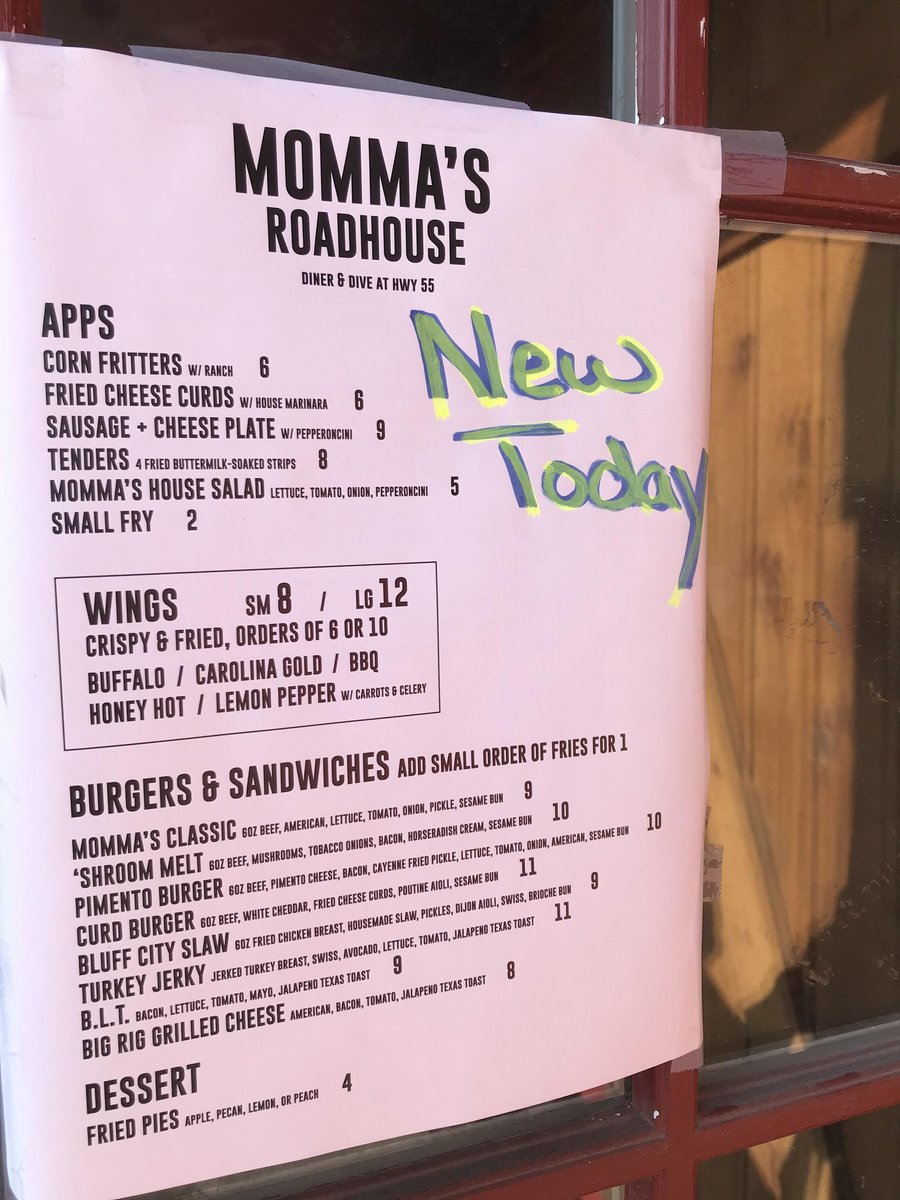 MOMMA'S
ROADHOUSE
DINER & DIVE AT HWY 55
New
Today
APPS
CORN FRITTERS W/ RANCH 6
FRIED CHEESE CURDS W/ HOUSE MARINARA 6
SAUSAGE + CHEESE PLATE W/ PEPPERONCINI 9
TENDERS 4 FRIED BUTTERMILK-SOAKED STRIPS 8
MOMMA'S HOUSE SALAD LETTUCE, TOMATO, ONION, PEPPERONCINI 5
SMALL FRY 2
WINGS SM 8 / LG 12
CRISPY & FRIED, ORDERS OF 6 OR 10
BUFFALO / CAROLINA GOLD / BBQ
HONEY HOT / LEMON PEPPER W/ CARROTS & CELERY
BURGERS & SANDWICHES ADD SMALL ORDER OF FRIES FOR 1
MOMMA'S CLASSIC 6OZ BEEF, AMERICAN, LETTUCE, TOMATO, ONION, PICKLE, SESAME BUN 9
'SHROOM MELT 6OZ BEEF, MUSHROOMS, TOBACCO ONIONS, BACON, HORSERADISH CREAM, SESAME BUN 10
PIMENTO BURGER 6OZ BEEF, PIMENTO CHEESE, BACON, CAYENNE FRIED PICKLE, LETTUCE, TOMATO, ONION, AMERICAN, SESAME BUN 10
CURD BURGER 6OZ BEEF, WHITE CHEDDAR, FRIED CHEESE CURDS, POUTINE AIOLI, SESAME BUN 11
BLUFF CITY SLAW 6OZ FRIED CHICKEN BREAST, HOUSEMADE SLAW, PICKLES, DIJON AIOLI, SWISS, BRIOCHE BUN 9
TURKEY JERKY JERKED TURKEY BREAST, SWISS, AVOCADO, LETTUCE, TOMATO, JALAPENO TEXAS TOAST 11
B.L.T. BACON, LETTUCE, TOMATO, MAYO, JALAPENO TEXAS TOAST 9
BIG RIG GRILLED CHEESE AMERICAN, BACON, TOMATO, JALAPENO TEXAS TOAST 8
DESSERT
FRIED PIES APPLE, PECAN, LEMON, OR PEACH 4